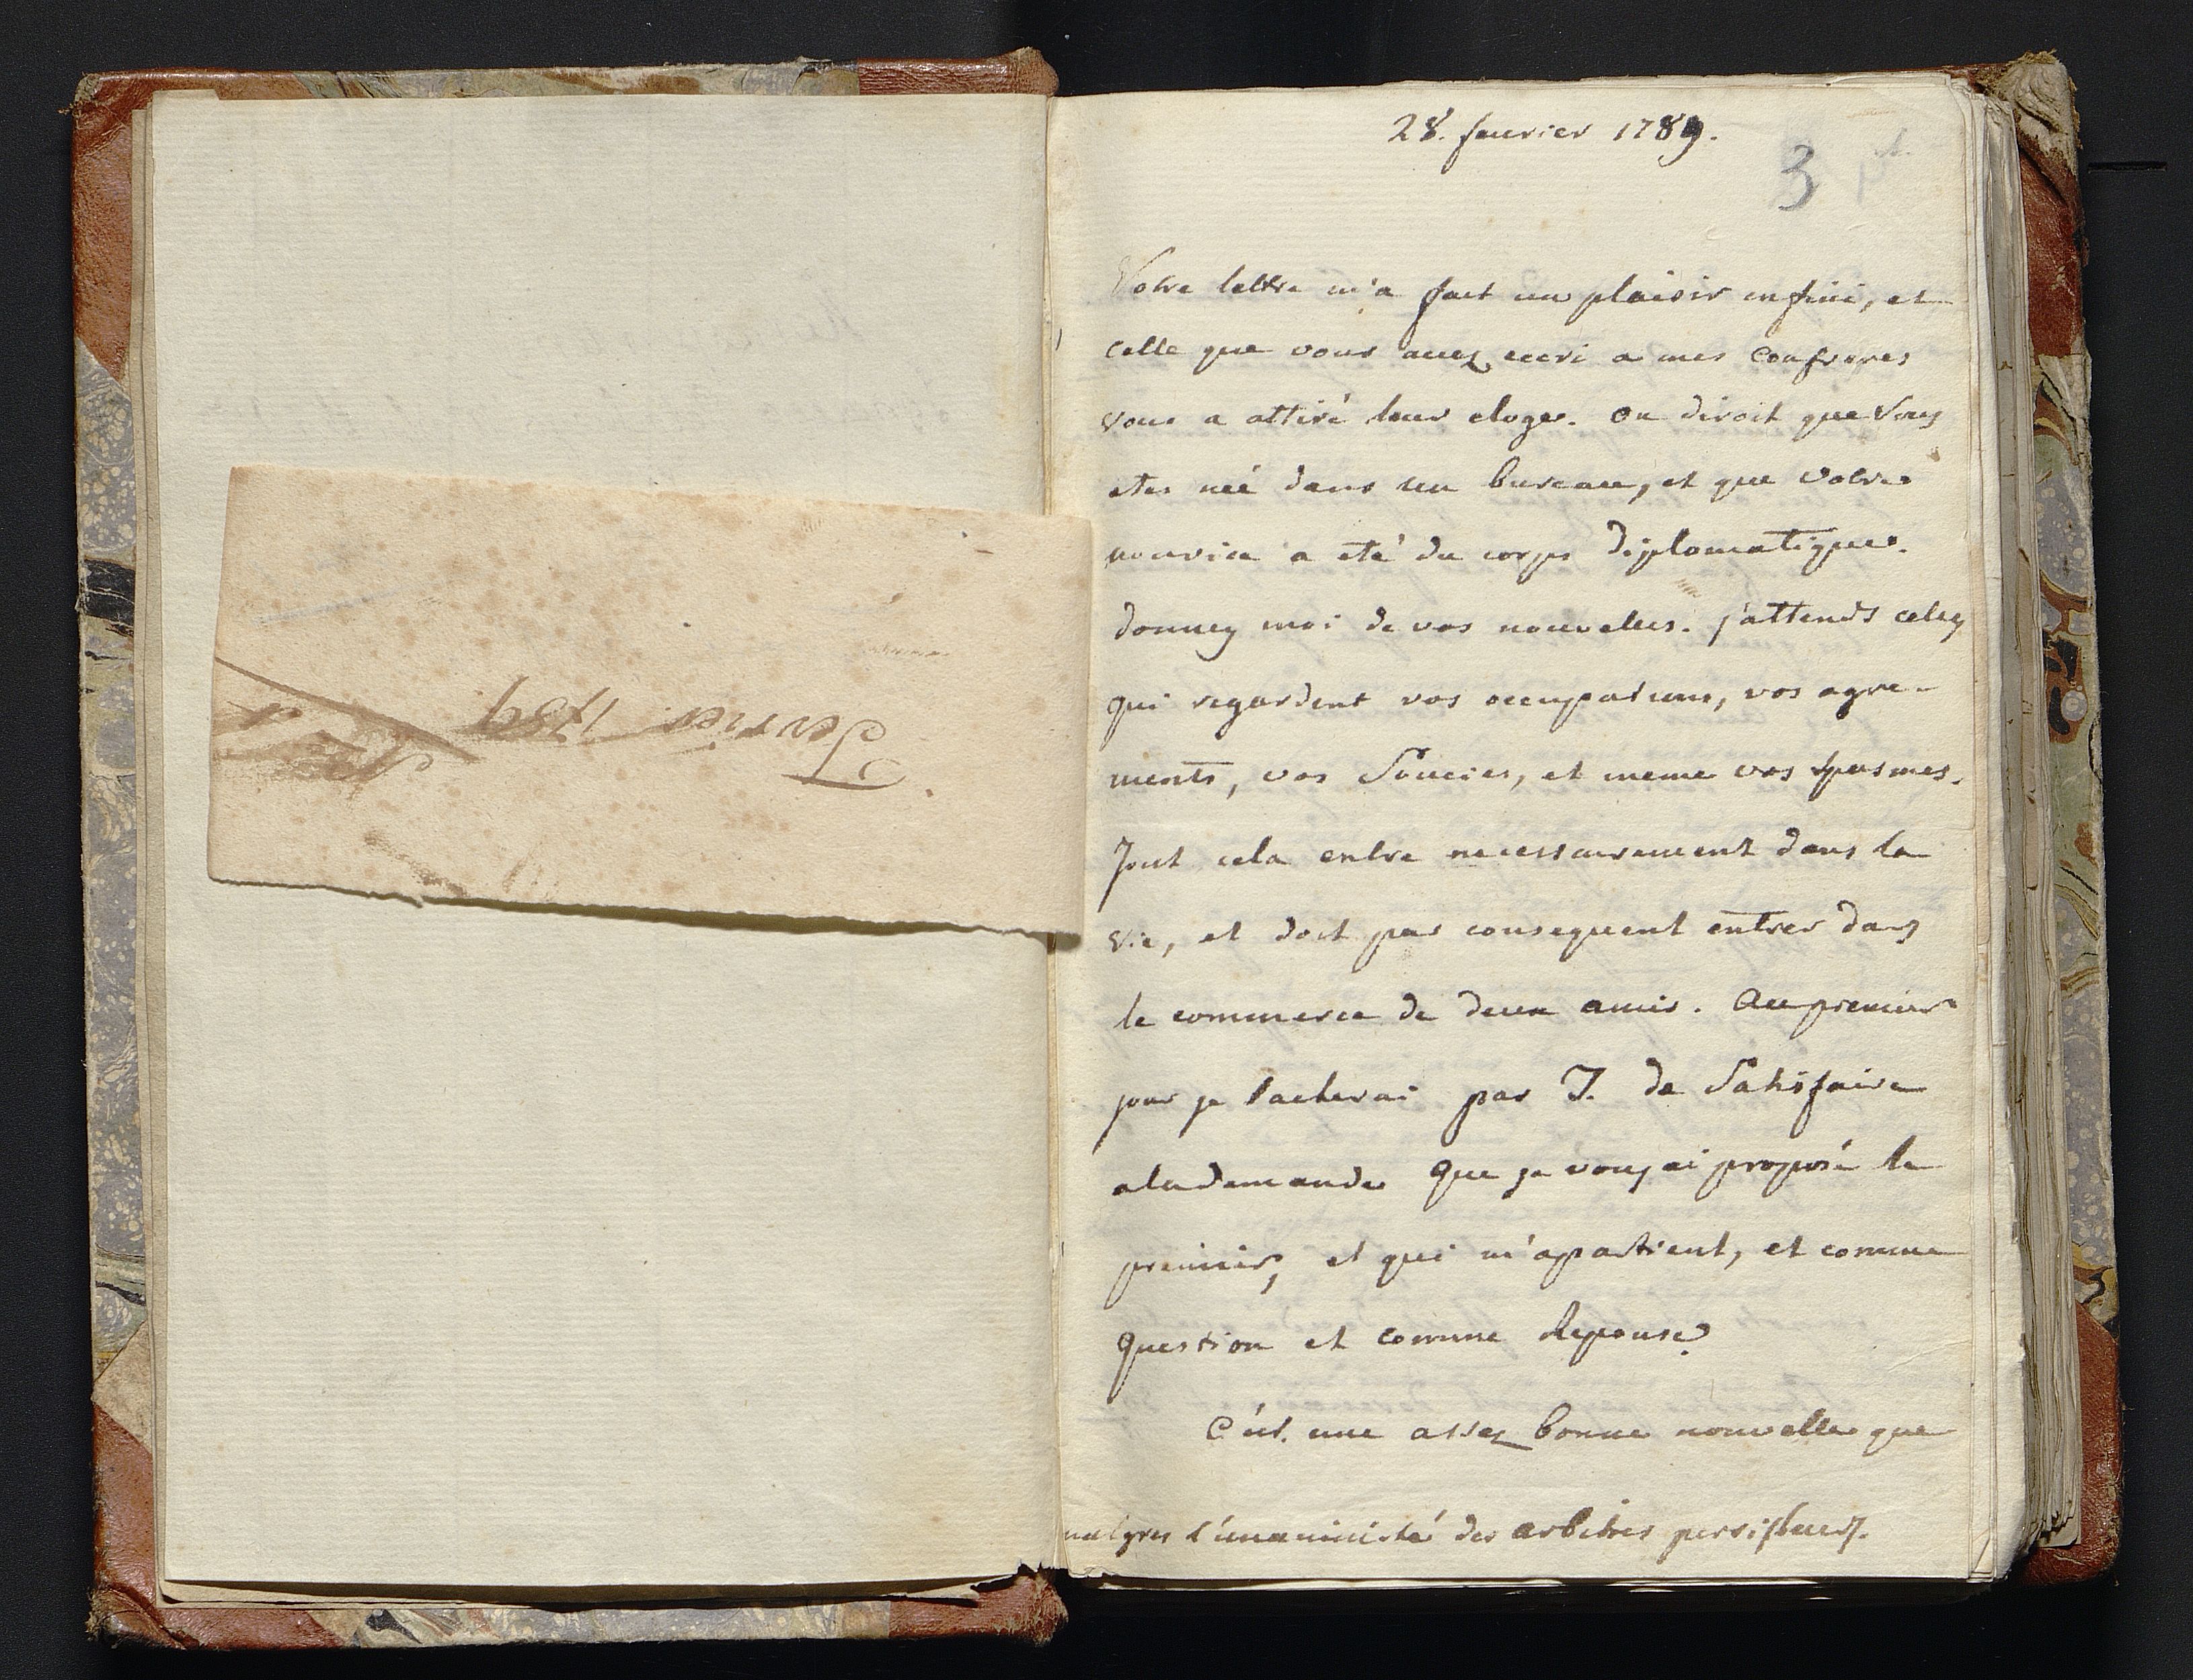 Fevrier 1789
28. feuvrier 1789.
3
Votre lettre m'a fait un plaisir infini, et
celle que vous avez ecri a mes confreres
vous a attiré leur eloge. on diroit que vous
etes né dans un bureau, et que votre
nourice a eté du corps diplomatique.
donnez moi de vos nouvelles. j'attends celles
qui regardent vos occupations, vos agre-
ments, vos Soucies, et meme vos spasmes.
Tout cela entre necessairement dans la
vie, et doit par consequent entrer dans
le commerce de deux amis. Au premier
jour je tacherai par T. de Satisfaire
a la demande que je vous ai proposé le
premier, et qui m'apartient, et comme
question et comme Reponse.
C'est une assez bonne nouvelle que
malgres l'unanimité des arbitres persifleurs.